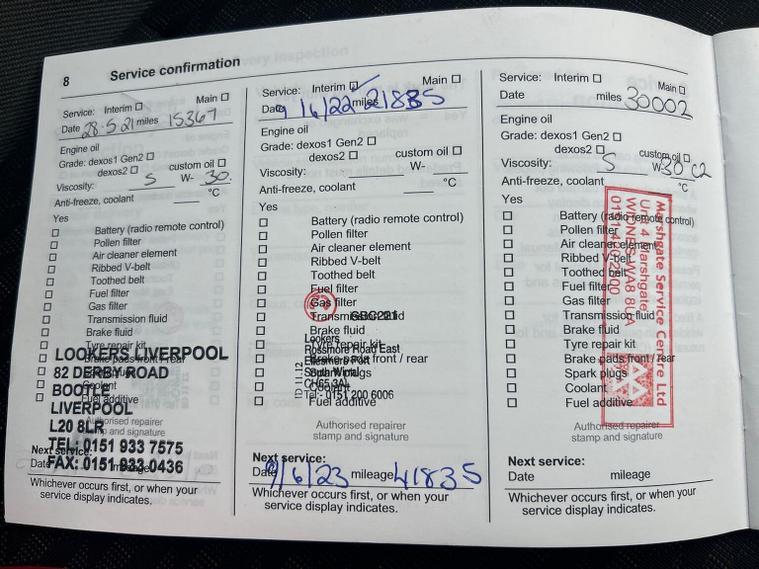 8 Service confirmation
Service: Interim ☐ Main ☐
Date 28.5.21 miles 15367
Engine oil
Grade: dexos1 Gen2 ☐
dexos2 ☐ custom oil ☐
Viscosity: 5 W- 30
Anti-freeze, coolant °C
Yes
☐ Battery (radio remote control)
☐ Pollen filter
☐ Air cleaner element
☐ Ribbed V-belt
☐ Toothed belt
☐ Fuel filter
☐ Gas filter
☐ Transmission fluid
☐ Brake fluid
☐ Tyre repair kit
☐ Brake pads front / rear
☐ Coolant
☐ Fuel additive
LOOKERS LIVERPOOL
82 DERBY ROAD
BOOTLE
LIVERPOOL
L20 8LR
TEL: 0151 933 7575
FAX: 0151 933 0436
Authorised repairer
stamp and signature
Next service:
Date mileage
Whichever occurs first, or when your
service display indicates.
Service: Interim ☑ Main ☐
Date 9/6/22 miles 21835
Engine oil
Grade: dexos1 Gen2 ☐
dexos2 ☐ custom oil ☐
Viscosity: W-
Anti-freeze, coolant °C
Yes
☐ Battery (radio remote control)
☐ Pollen filter
☐ Air cleaner element
☐ Ribbed V-belt
☐ Toothed belt
☐ Fuel filter
☐ Gas filter
☐ Transmission fluid
☐ Brake fluid
☐ Tyre repair kit
☐ Brake pads front / rear
☐ Spark plugs
☐ Coolant
☐ Fuel additive
Lookers
Rossmore Road East
Ellesmere Port
South Wirral
Tel:- 0151 200 6006
Authorised repairer
stamp and signature
Next service:
Date 9/6/23 mileage 41835
Whichever occurs first, or when your
service display indicates.
Service: Interim ☐ Main ☐
Date miles 30002
Engine oil
Grade: dexos1 Gen2 ☐
dexos2 ☐ custom oil ☐
Viscosity: 5 W- 30 C2
Anti-freeze, coolant °C
Yes
☐ Battery (radio remote control)
☐ Pollen filter
☐ Air cleaner element
☐ Ribbed V-belt
☐ Toothed belt
☐ Fuel filter
☐ Gas filter
☐ Transmission fluid
☐ Brake fluid
☐ Tyre repair kit
☐ Brake pads front / rear
☐ Spark plugs
☐ Coolant
☐ Fuel additive
Marshgate Service Centre Ltd
Unit 4 Marshgate
WIDNES WA8 8UA
Authorised repairer
stamp and signature
Next service:
Date mileage
Whichever occurs first, or when your
service display indicates.